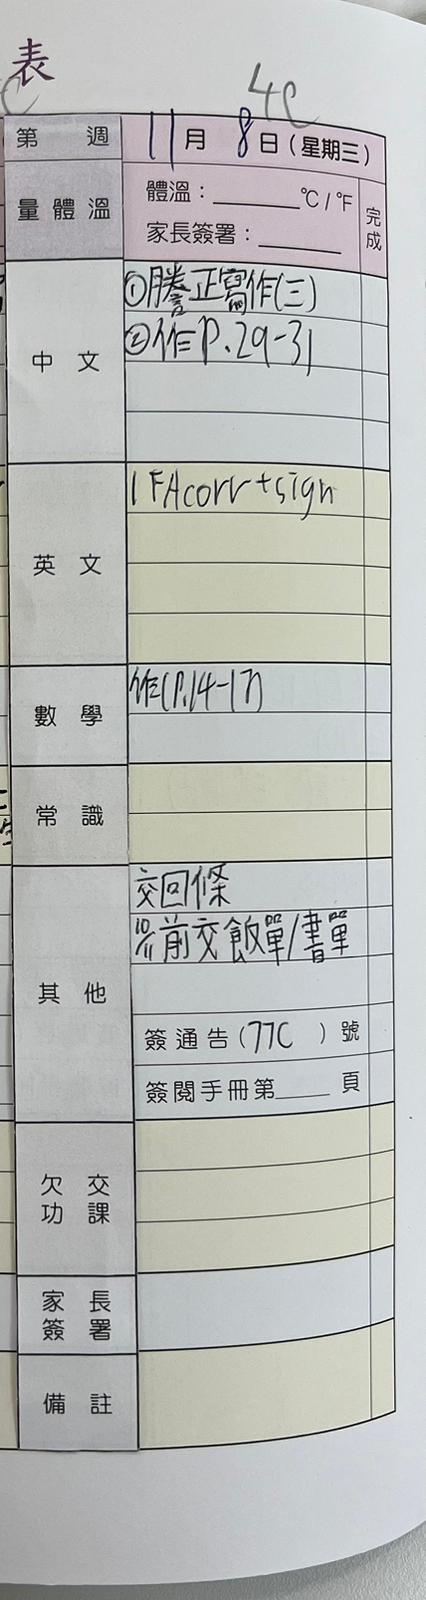 表
4C
第 週 11月 8日(星期三)
量體溫
體溫：______℃/℉
家長簽署：______
完成
中文
①謄正寫作(三)
②作P.29-31
英文
1 FAcorr+sign
數學
作(P.14-17)
常識
其他
交回條
10/11前交飯單/書單
簽通告(77C )號
簽閱手冊第____頁
欠交功課
家長簽署
備註